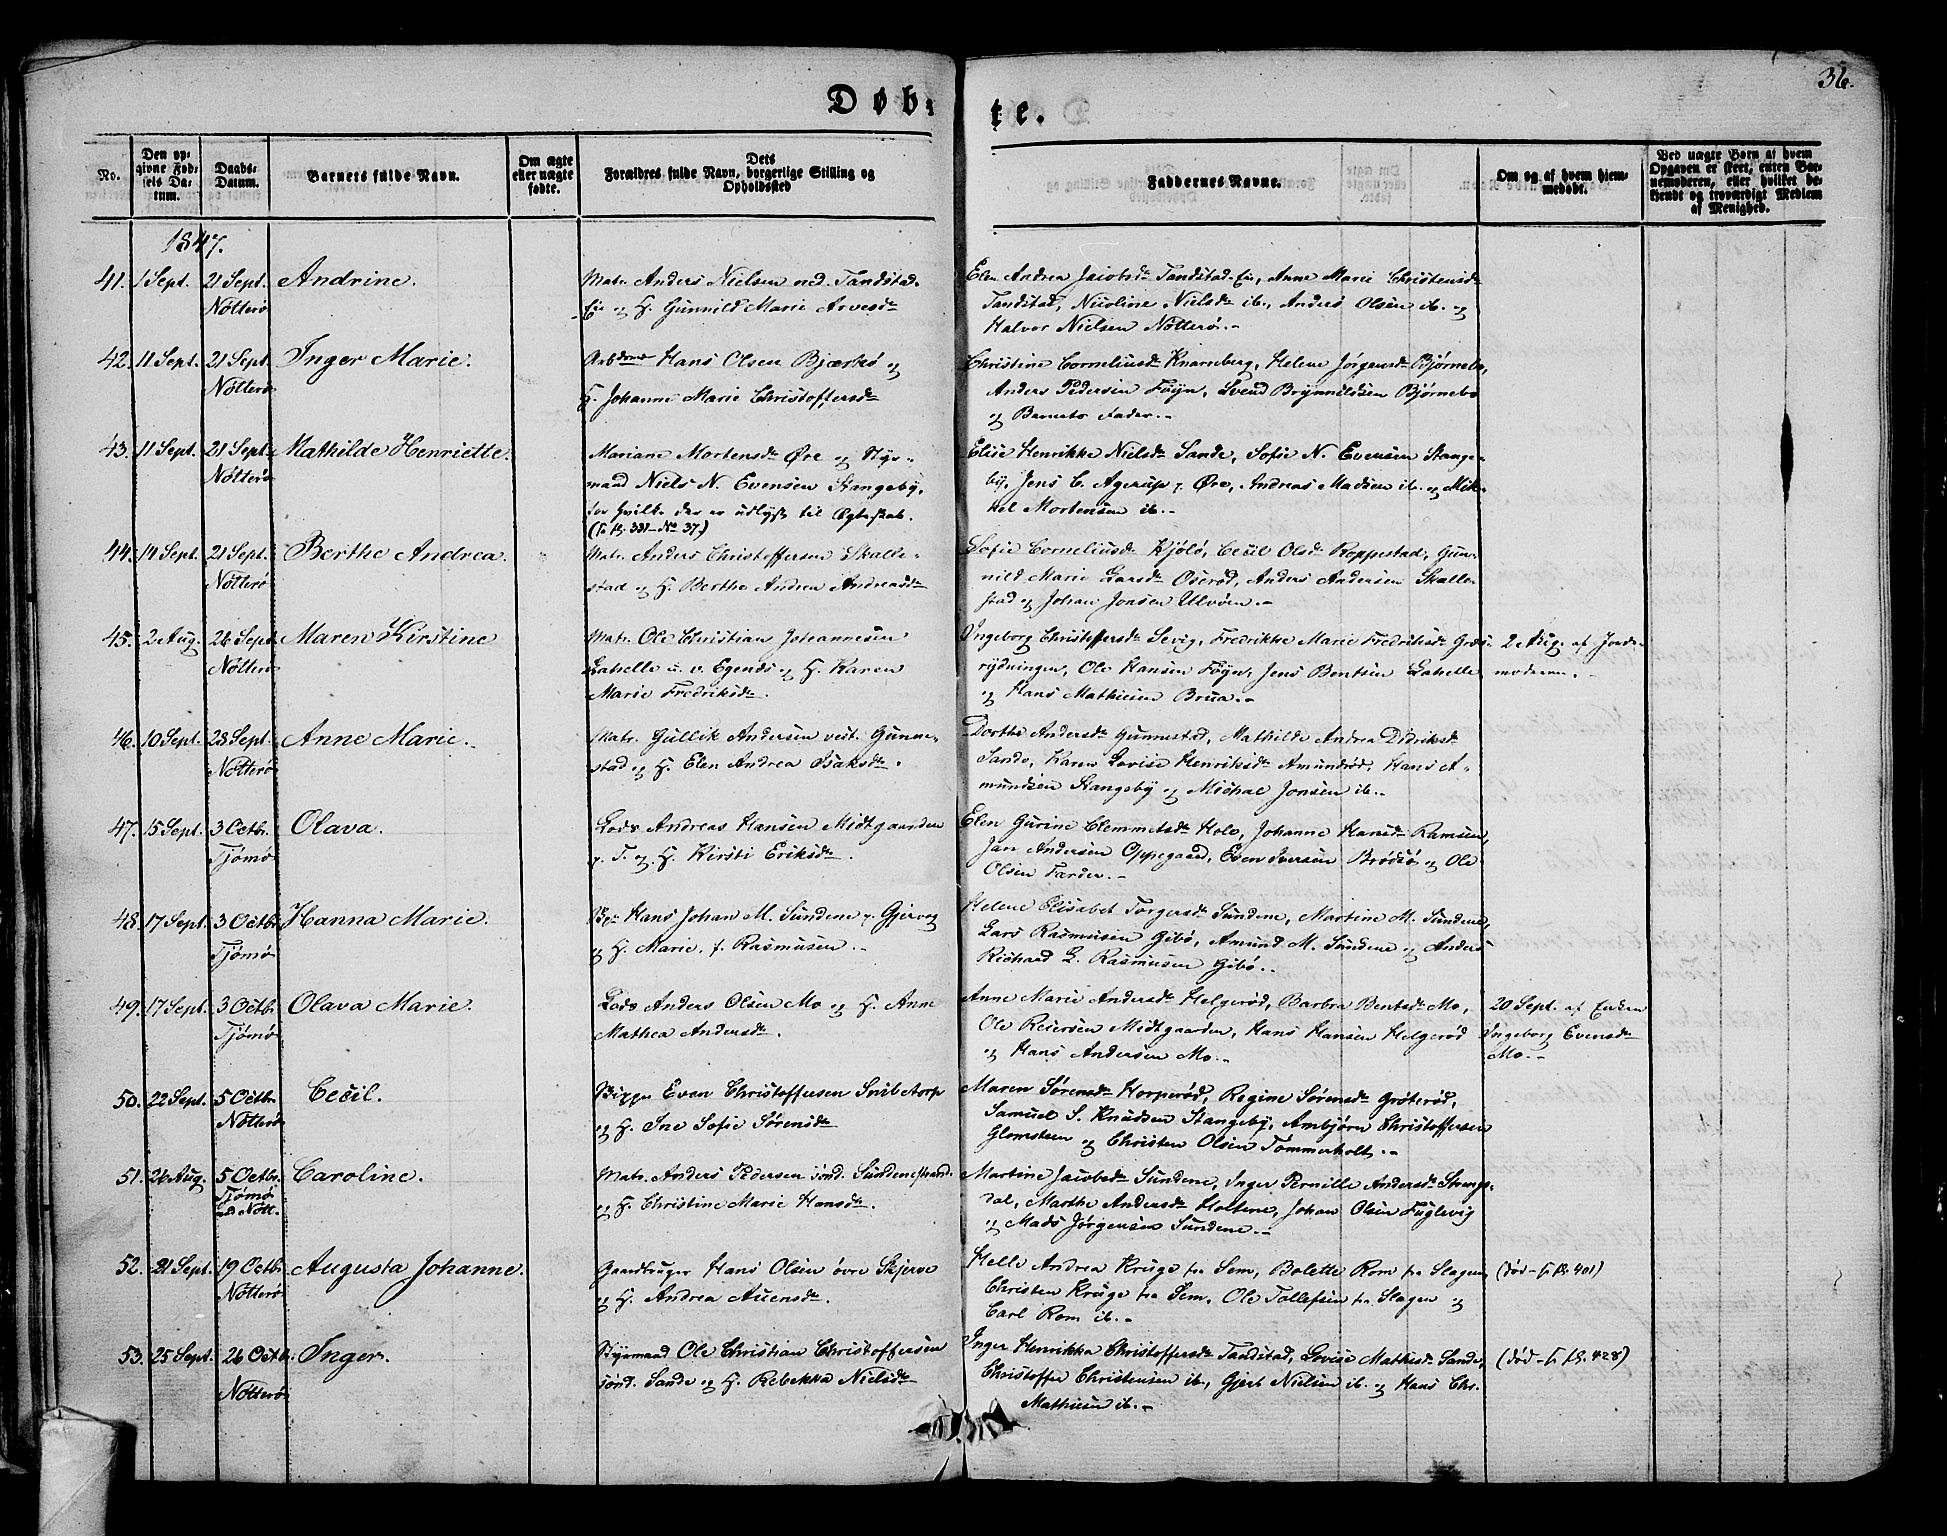 36.
Døbte.
No.
Den opgivne Fødsels Datum.
Daabs-Datum.
Barnets fulde Navn.
Om ægte eller uægte fødte.
Dets Forældres fulde Navn, borgerlige Stilling og Opholdssted
Faddernes Navne.
Om og af hvem hjemmedøbt.
Ved uægte Børn af hvem Opgaven er skeet, enten Barnemoderen, eller hvilket bekjendt og troværdigt Medlem af Menighed.
1847.
41. 1 Sept. 21 Sept. Nötterö Andrine.
Matr. Anders Nielsen ned. Tandstad
Eie og H. Gunnild Marie Arvesdr
Elen Andrea Jacobsdr Tandstad-Eie, Anne Marie Christensdr
Tandstad, Nicoline Nielsdr ib., Anders Olsen ib. og
Halvor Nielsen Nötterö.-
42. 11 Sept. 21 Sept. Nötterö Inger Marie.
Arbdsmd Hans Olsen Bjærkö og
H. Johanne Marie Christoffersdr
Christine Corneliusdr Knarreberg, Helene Jörgensdr Bjørnebo,
Anders Pedersen Föyn, Svend Brynnildsen Bjørnebo
og Barnets Fader.-
43. 11 Sept. 21 Sept. Nötterö Mathilde Henriette.
Mariane Mortensdr Øre og Styr-
mand Niels N. Evensen Stangeby,
for hvilke der er udlyst til Ægteskab.
(Se fl. 331 - No 37.)
Elise Henrikke Nielsdr Sande, Sofie N. Evensen Stange-
by, Jens C. Agerup p. Øre, Andreas Madsen ib. og Mik-
kel Mortensen ib.-
44. 14 Sept. 21 Sept. Nötterö Berthe Andrea.
Matr. Anders Christoffersen Skalle-
stad og H. Berthe Andrea Andreasdr
Sofie Corneliusdr Kjölö, Cecil Olsdr Roppestad, Gun-
nild Marie Larsdr Oserød, Anders Andersen Skalle-
stad og Johan Jonsen Ulvöen.-
45. 2 Aug. 26 Sept. Nötterö Maren Kirstine
Matr. Ole Christian Johannesen
Lahelle u. v. Egends og H. Karen
Marie Fredriksdr.
Ingeborg Christoffersdr Sevig, Fredrikke Marie Fredriksdr Græs-
rydningen, Ole Hansen Föyn, Jens Bentsen Lahelle
og Hans Mathiesen Brua.-
2 Aug. af Jorde-
moderen.
46. 10 Sept. 28 Sept. Nötterö Anne Marie.
Matr. Gullik Andersen vest. Gunne-
stad og H. Elen Andrea Isaksdr.
Dorthe Andersdr Gunnestad, Mathilde Andrea Didriksdr
Sande, Karen Lovise Henriksdr Amundröd, Hans A-
mundsen Stangeby og Michal Jonsen ib.-
47. 15 Sept. 3 Octbr. Tjömö Olava.
Lods Andreas Hansen Midtgaarden
p. T. og H. Kirsti Eriksdr.
Elen Gurine Clemmetsdr Hole, Johanne Hansdr Ramsen,
Jan Andersen Oppegaard, Even Iversen Brödsö og Ole
Olsen Færder.-
48. 17 Sept. 3 Octbr. Tjömö Hanna Marie.
Hans Johan M. Sundene p. Gjervog
og H. Marie, f. Rasmusen.
Helene Elisabet Torgersdr Sundene, Martine M. Sundene,
Lars Rasmusen Gibö, Amund M. Sundene og Anders
Richard L. Rasmusen Gibö.-
49. 17 Sept. 3 Octbr. Tjömö Olava Marie.
Lods Anders Olsen Mo og H. Anne
Mathea Andersdr.
Anne Marie Andersdr Helgeröd, Barbra Bentsdr Mo,
Ole Reiersen Midtgaarden, Hans Hansen Helgeröd
og Hans Andersen Mo.-
20 Sept. af Enken
Ingeborg Evensdr
Mo.-
50. 22 Sept. 5 Octbr. Nötterö Cecil.
Even Christoffersen Snibetorp
og H. Ine Sofie Sörensdr
Maren Sörensdr Horperöd, Regine Sörensdr Gröteröd,
Samuel S. Knudsen Stangeby, Ambjörn Christoffersen
Glomsteen og Christen Olsen Tommerholt.-
51. 26 Aug. 5 Octbr. Tjömö Nött. Caroline.
Matr. Anders Pedersen sönd. Sundenestrand
og H. Christine Marie Hansdr.
Martine Jacobsdr Sundene, Inger Pernille Andersdr Sprngs-
dal, Marthe Andersdr Holtene, Johan Olsen Fuglevig
og Mads Jörgensen Sundene.-
52. 21 Sept. 19 Octbr. Nötterö Augusta Johanne.
Gaardbruger Hans Olsen övre Skjerve
og H. Andrea Auensdr.
Helle Andrea Kruge fra Sem, Bolette Rom fra Slagen,
Christen Kruge fra Sem, Ole Tollefsen fra Slagen og
Carl Rom ib.-
(død - fr fl. 401)
53. 25 Sept. 26 Octb. Nötterö Inger.
Styrmand Ole Christian Christoffersen
sönd. Sande og H. Rebekka Nielsdr
Inger Henrikka Christoffersdr Tandstad, Lovise Mathisdr Sande,
Christoffer Christensen ib., Gjert Nielsen ib. og Hans Chr.
Mathiesen ib.-
(død - fr fl. 428)